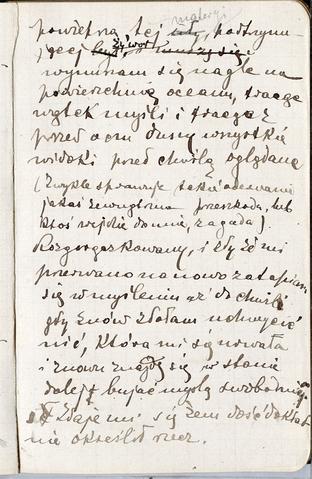 materyi
powietrzną tej siły, podtrzymu-
jącej żywot
wynurzam się nagle na
powierzchnię oceanu, tracąc
wątek myśli i tracąc z
przed oczu duszy wszystkie
widoki przed chwilą oglądane
(Zwykle sprawuje takie oderwanie
jakaś zewnętrzna przeszkoda, lub
ktoś wejdzie do mnie, zagada).
Rozgorączkowany, i zły że mi
przerwano na nowo zatapiam
się w myśleniu aż do chwili
gdy znów zdołam uchwycić
nić, która mi się porwała
i znowu znajdę się w stanie
dalej bujać myślą swobodnie
Zdaje mi się żem dość dokład-
nie określił rzecz.